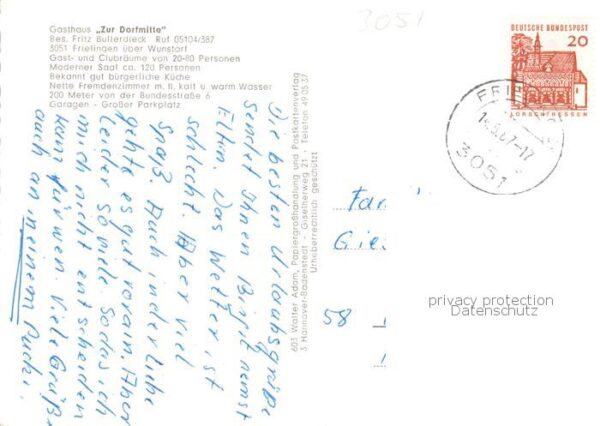 Gasthaus „Zur Dorfmitte"
Bes. Fritz Bullerdieck Ruf 05104/387
3051 Frielingen über Wunstorf
Gast- und Clubräume von 20-80 Personen
Moderner Saal ca. 120 Personen
Bekannt gut bürgerliche Küche
Nette Fremdenzimmer m. fl. kalt u. warm Wasser
200 Meter von der Bundesstraße 6
Garagen - Großer Parkplatz
3051
DEUTSCHE BUNDESPOST
20
LORSCH/HESSEN
3051
603 Walter Adam, Papiergroßhandlung und Postkartenverlag
3 Hannover-Badenstedt - Giselherweg 21 - Telefon 49 05 37
Urheberrechtlich geschützt
Die besten Urlaubsgrüße
Sendet Ihnen Birgit
Eltern. Das Wetter ist
schlecht. Aber viel
Spaß. Auch in der Liebe
geht es gut voran. Aber
leider so viele Sodas ich
mich nicht entscheiden
kann für wen. Viele Grüße
auch an meinem
Fam
Gie
58
privacy protection
Datenschutz